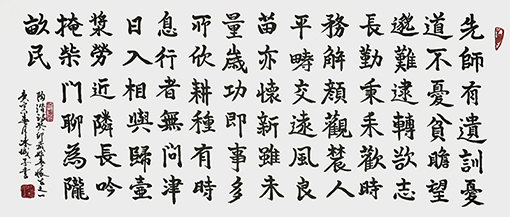 先師有遺訓憂
道不憂貧瞻望
邈難逮轉欲志
長勤秉耒歡時
務解顏觀農人
平疇交遠風良
苗亦懷新雖未
量歲功即事多
所欣耕種有時
息行者無問津
日入相與歸壺
漿勞近隣長吟
掩柴門聊為隴
畝民